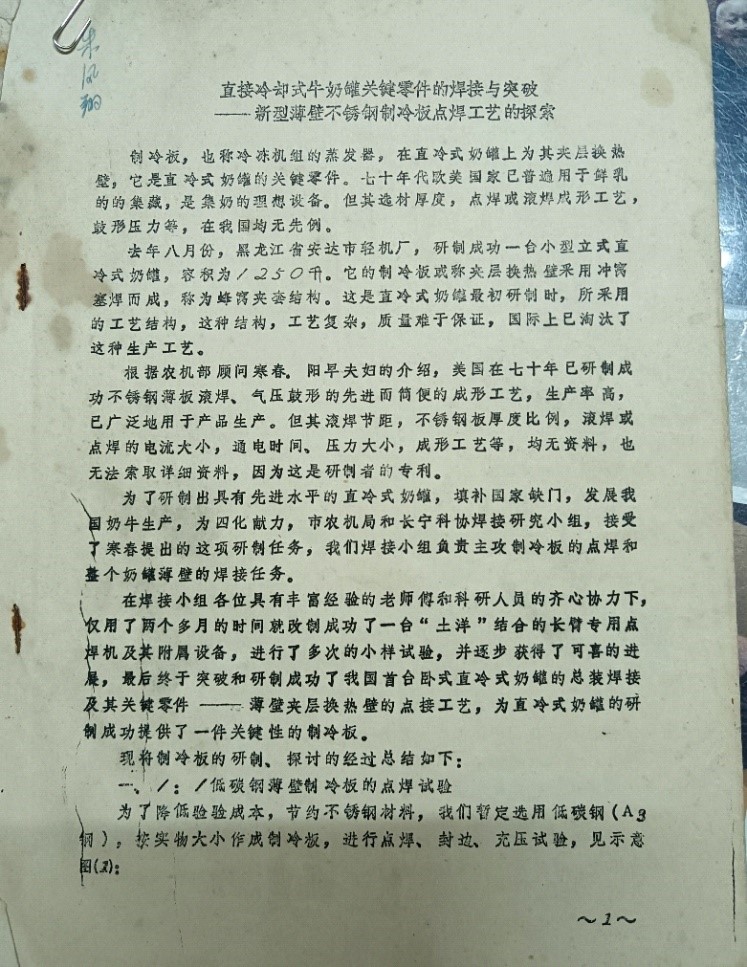 朱凤翔
直接冷却式牛奶罐关键零件的焊接与突破
——新型薄壁不锈钢制冷板点焊工艺的探索
制冷板，也称冷冻机组的蒸发器，在直冷式奶罐上为其夹层换热
壁，它是直冷式奶罐的关键零件。七十年代欧美国家已普遍用于鲜乳
的的集藏，是集奶的理想设备。但其选材厚度，点焊或滚焊成形工艺，
鼓形压力等，在我国均无先例。
去年八月份，黑龙江省安达市轻机厂，研制成功一台小型立式直
冷式奶罐，容积为1250升。它的制冷板或称夹层换热壁采用冲窝
塞焊而成，称为蜂窝夹套结构。这是直冷式奶罐最初研制时，所采用
的工艺结构，这种结构，工艺复杂，质量难于保证，国际上已淘汰了
这种生产工艺。
根据农机部顾问寒春．阳早夫妇的介绍，美国在七十年已研制成
功不锈钢薄板滚焊、气压鼓形的先进而简便的成形工艺，生产率高，
已广泛地用于产品生产。但其滚焊节距，不锈钢板厚度比例，滚焊或
点焊的电流大小，通电时间、压力大小，成形工艺等，均无资料，也
无法索取详细资料，因为这是研制者的专利。
为了研制出具有先进水平的直冷式奶罐，填补国家缺门，发展我
国奶牛生产，为四化献力，市农机局和长宁科协焊接研究小组，接受
了寒春提出的这项研制任务，我们焊接小组负责主攻制冷板的点焊和
整个奶罐薄壁的焊接任务。
在焊接小组各位具有丰富经验的老师傅和科研人员的齐心协力下，
仅用了两个多月的时间就改制成功了一台“土洋”结合的长臂专用点
焊机及其附属设备，进行了多次的小样试验，并逐步获得了可喜的进
展，最后终于突破和研制成功了我国首台卧式直冷式奶罐的总装焊接
及其关键零件——薄壁夹层换热壁的点接工艺，为直冷式奶罐的研
制成功提供了一件关键性的制冷板。
现将制冷板的研制、探讨的经过总结如下：
一、1：1低碳钢薄壁制冷板的点焊试验
为了降低验验成本，节约不锈钢材料，我们暂定选用低碳钢（A3
钢），按实物大小作成制冷板，进行点焊、封边、充压试验，见示意
图(1)：
～1～